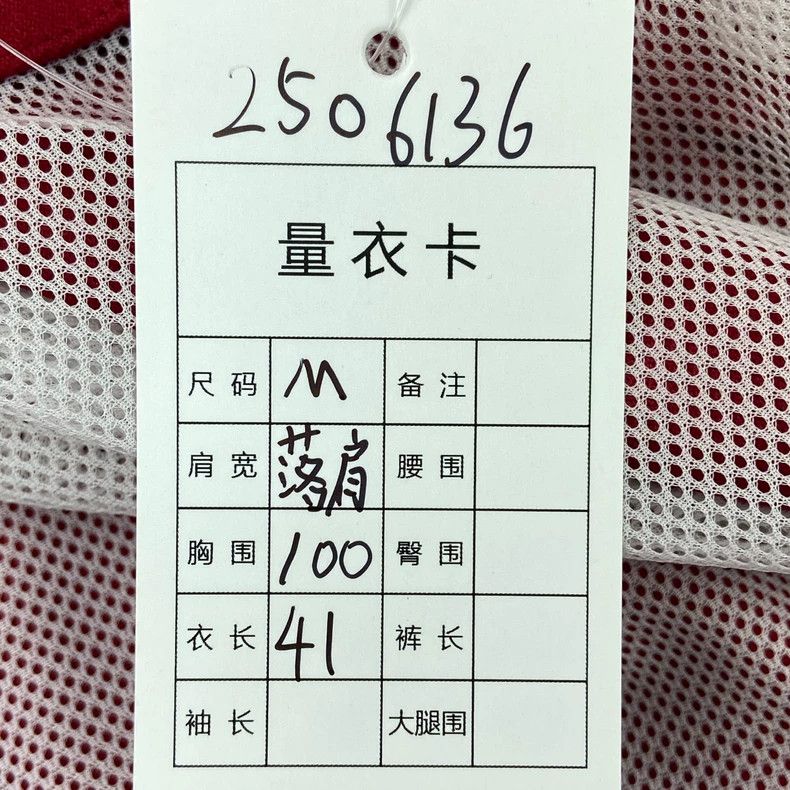 2506136
量衣卡
尺码 M 备注
肩宽 落肩 腰围
胸围 100 臀围
衣长 41 裤长
袖长 大腿围